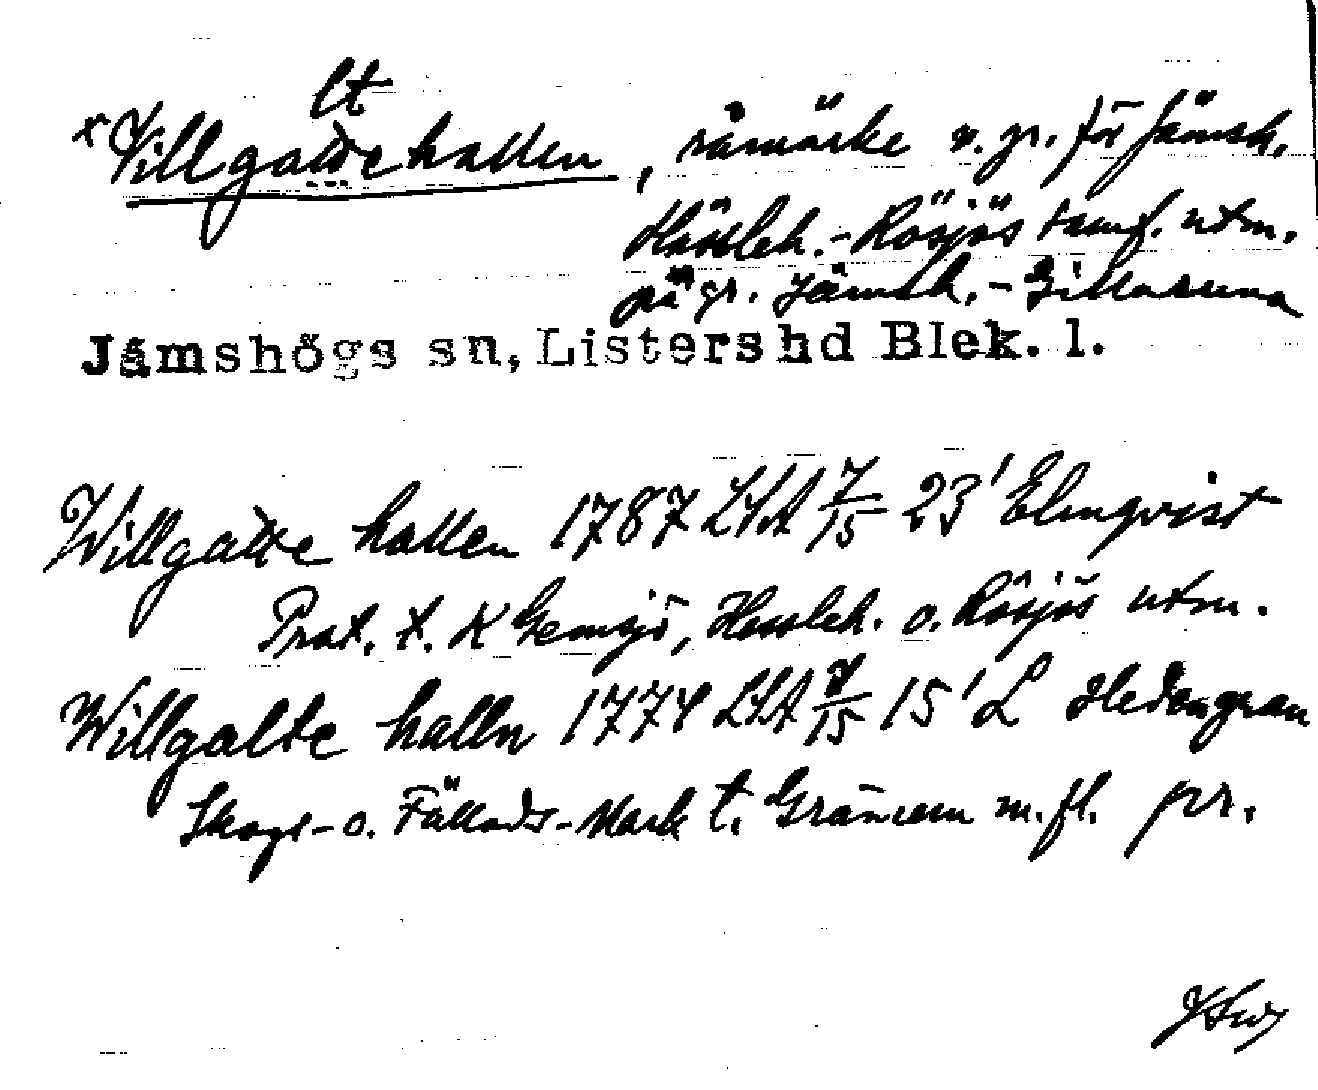 lt
x Villgattehallen, råmärke v. gr. för Jämsh.
Hässleh.-Rösjös samf. utm.
på gr. Jämsh.-Gillaruna
Jämshögs sn, Listers hd Blek. l.
Willgatte hallen 1787 LStA 7/15 23' Elmqvist
Prot. t. K Gemsjö, Hessleh. o. Rösjös utm.
Willgalte halln 1774 LStA 7/15 15' L Hedengran
Skogs- o. Fällads-Mark t. Gränum m.fl. pr.